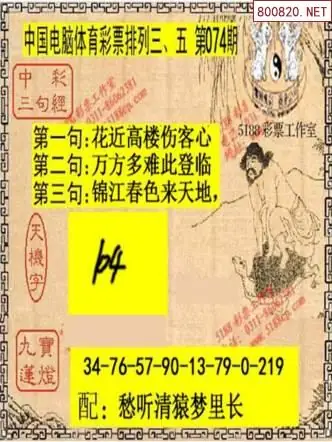 800820.NET
中国电脑体育彩票排列三、五 第074期
中彩
三句經
5188彩票工作室
第一句:花近高楼伤客心
第二句:万方多难此登临
第三句:锦江春色来天地,
天機字
104
九寶蓮燈
34-76-57-90-13-79-0-219
配: 愁听清猿梦里长